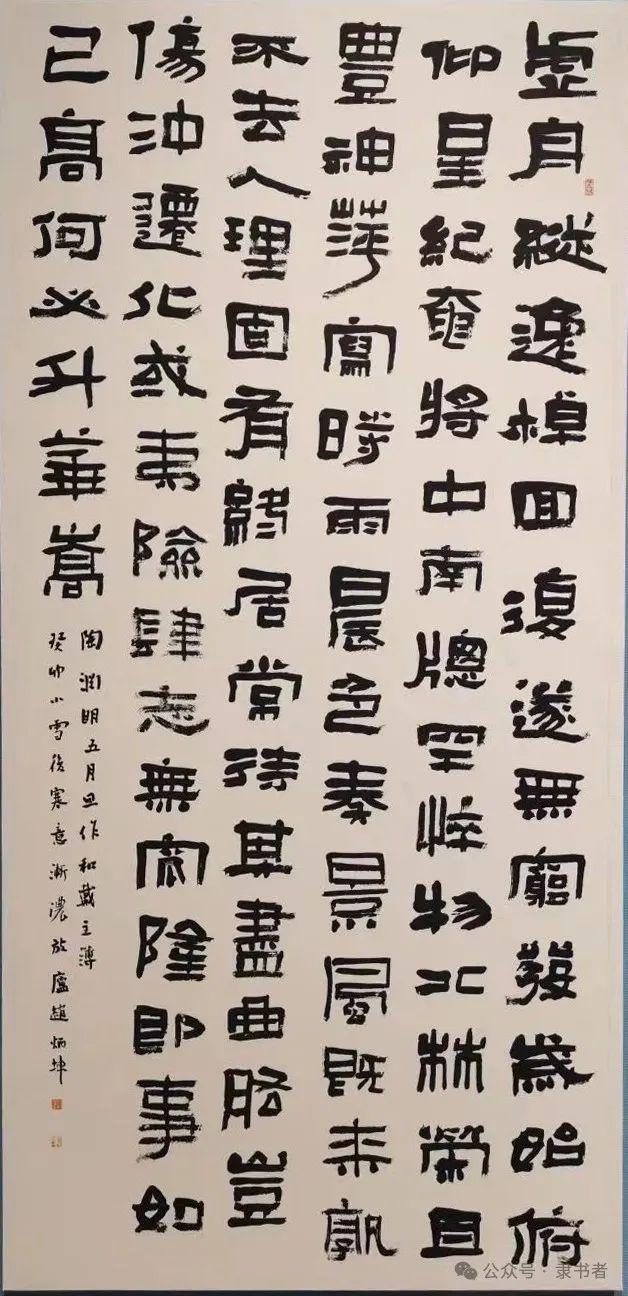 虛舟縱逸棹回復遂無窮發歲始俯
仰星紀奄將中南牕罕悴物北林榮且
豐神萍寫時雨晨色奏景風既來孰
不去人理固有終居常待其盡曲肱豈
傷沖遷化或夷險肆志無窊隆即事如
已高何必升華嵩
陶淵明五月旦作和戴主薄
癸卯小雪後寒意漸濃放廬趙炳坤
公众号·隶书者